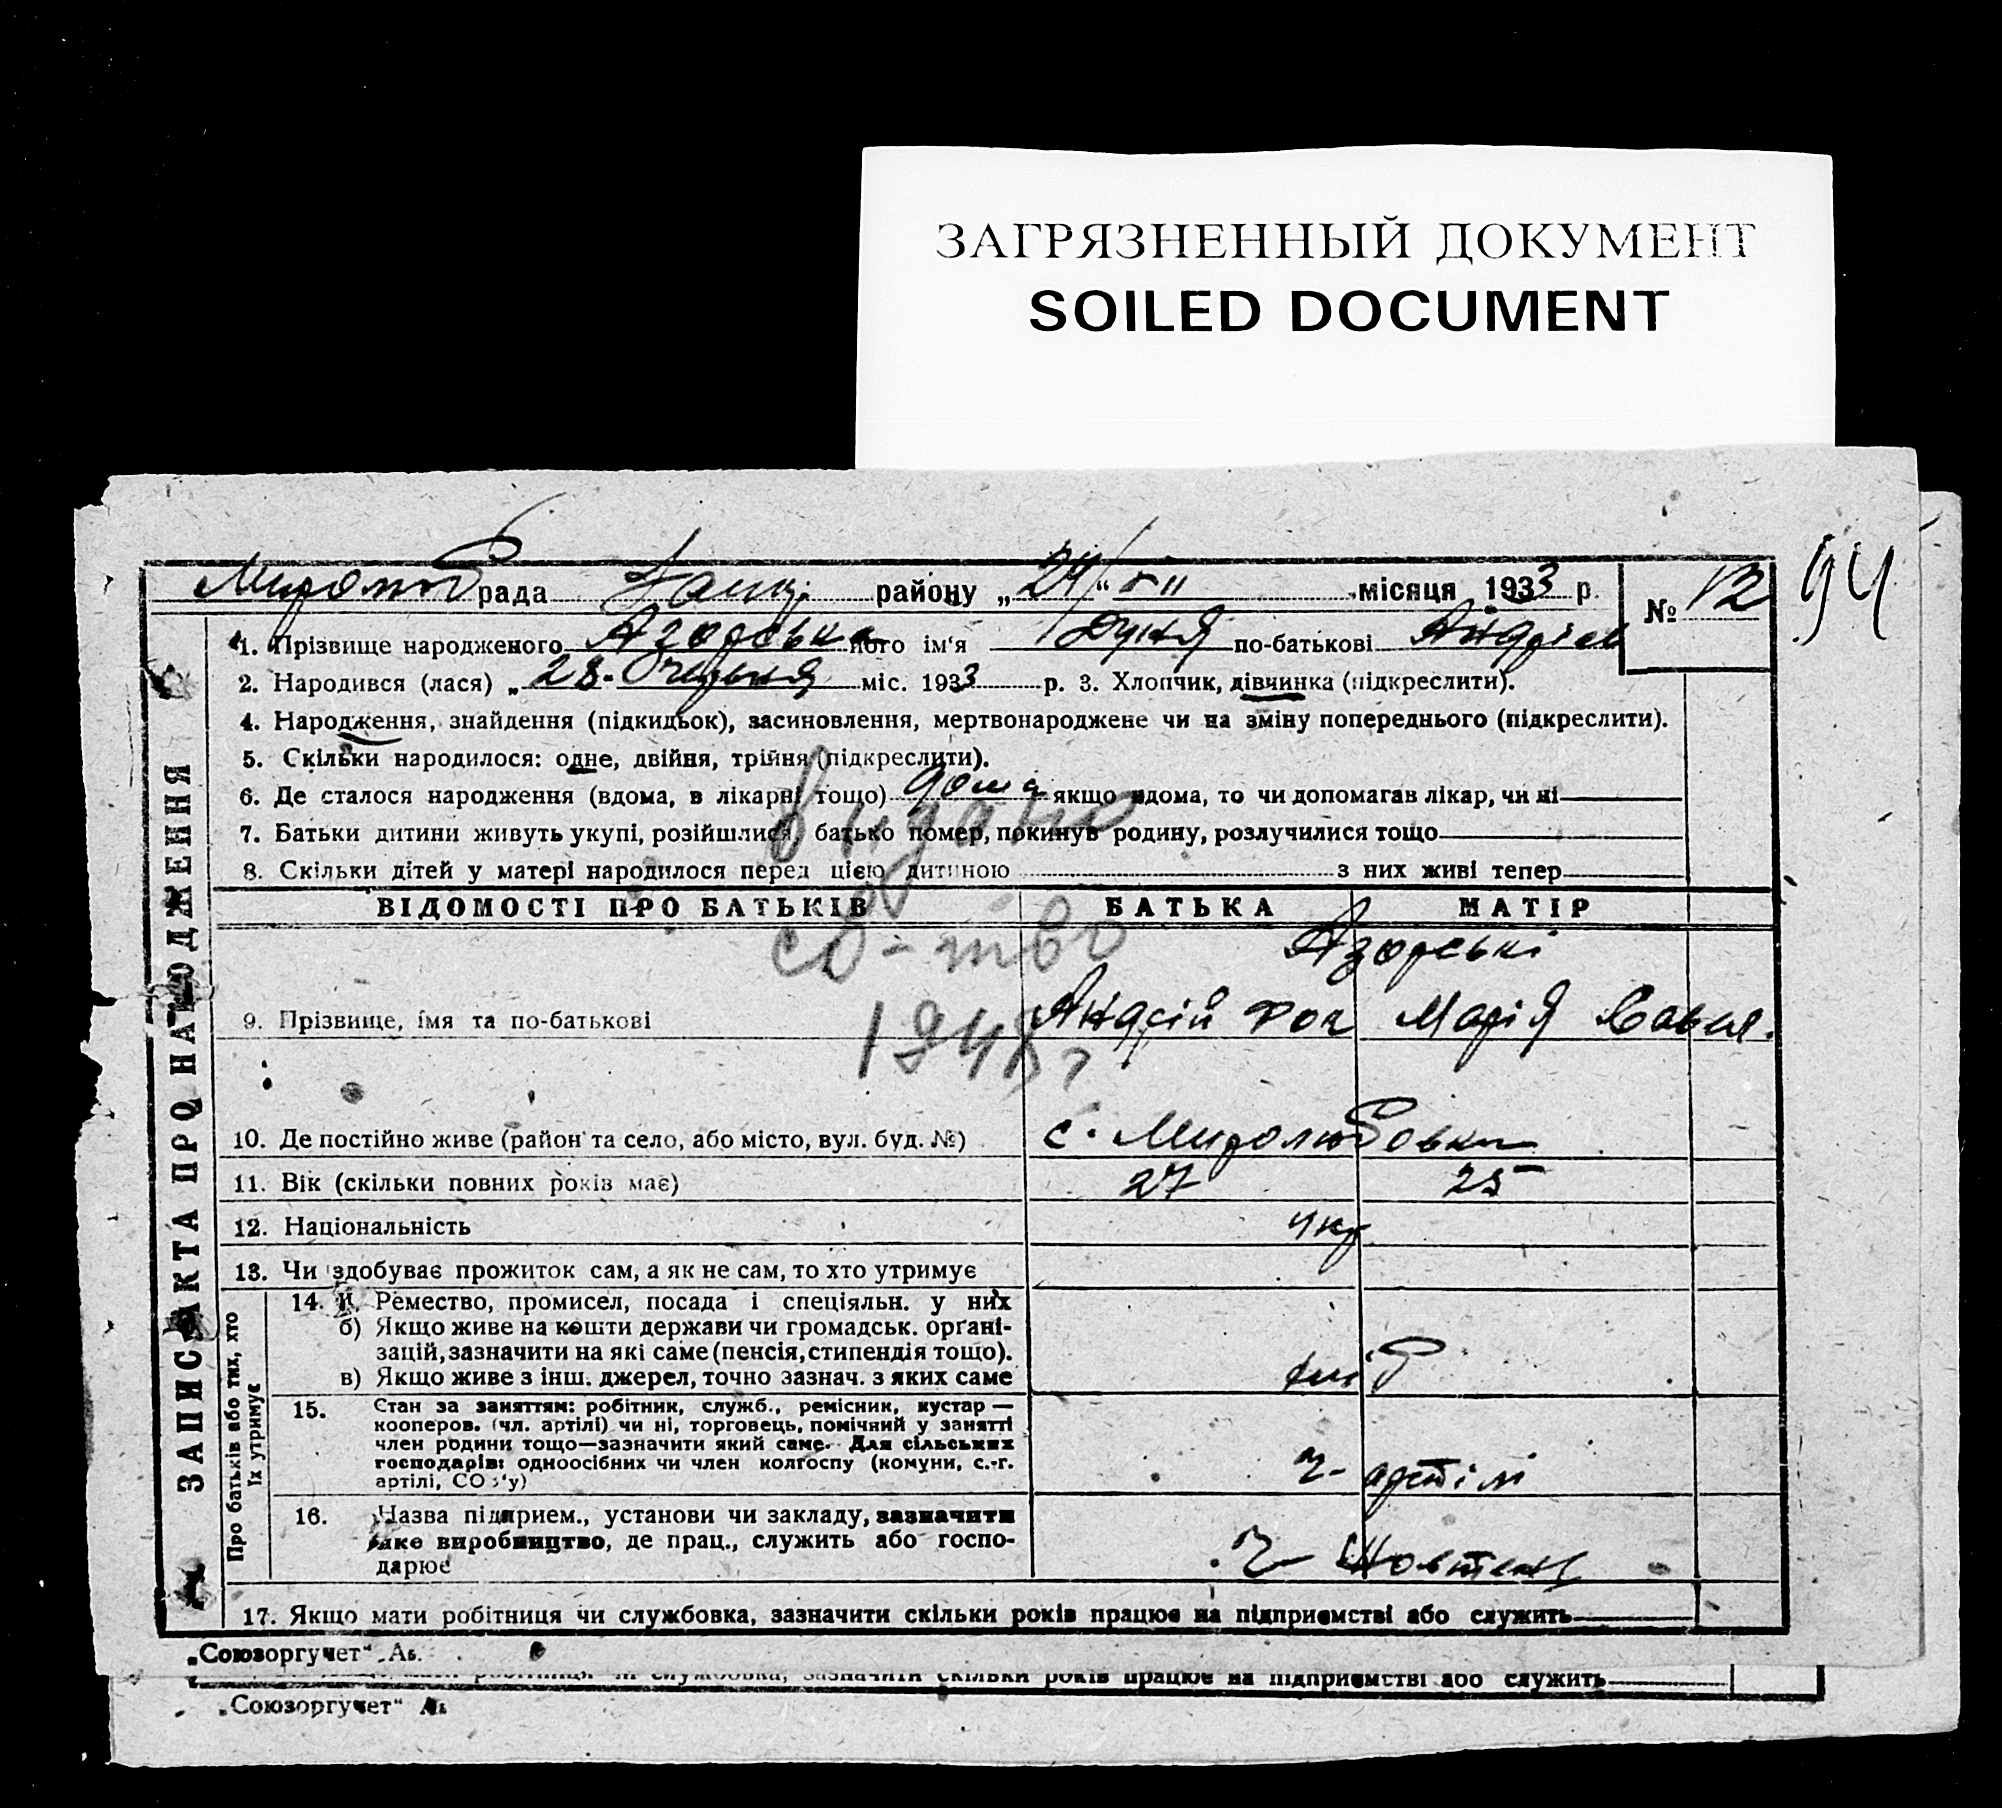 ЗАГРЯЗНЕННЫЙ ДОКУМЕНТ
SOILED DOCUMENT
94
рада району „24“ місяця 1933 р. № 12
1. Прізвище народженого Азорська його ім‘я Дуня по-батькові Андрієв
2. Народився (лася) „28. Червня міс. 1933 р. 3. Хлопчик, дівчинка (підкреслити).
4. Народження, знайдення (підкидьок), засиновлення, мертвонароджене чи на зміну попереднього (підкреслити).
5. Скільки народилося: одне, двійня, трійня (підкреслити).
6. Де сталося народження (вдома, в лікарні тощо) дома якщо вдома, то чи допомагав лікар, чи ні
7. Батьки дитини живуть укупі, розійшлися, батько помер, покинув родину, розлучилися тощо
8. Скільки дітей у матері народилося перед цією дитиною з них живі тепер
Видано
св-тво
ЗАПИС АКТА ПРО НАРОДЖЕННЯ
ВІДОМОСТІ ПРО БАТЬКІВ БАТЬКА МАТІР
Азорські
9. Прізвище, імя та по-батькові Андрій Марія
10. Де постійно живе (район та село, або місто, вул. буд. №) с. Миролюбовки
11. Вік (скільки повних років має) 27 25
12. Національність укр
13. Чи здобуває прожиток сам, а як не сам, то хто утримує
Про батьків або тих, хто
їх утримує
14. Ремество, промисел, посада і спеціяльн. у них
б) Якщо живе на кошти держави чи громадськ. органі-
зацій, зазначити на які саме (пенсія, стипендія тощо).
в) Якщо живе з інш. джерел, точно зазнач. з яких саме хліб
15. Стан за заняттям: робітник, служб., ремісник, кустар —
кооперов. (чл. артілі) чи ні, торговець, помічний у занятті
член родини тощо—зазначити який саме. Для сільських
господарів: одноосібних чи член колгоспу (комуни, с.-г.
артілі, СО з‘у) ч- артілі
16. Назва підприєм., установи чи закладу, зазначити
яке виробництво, де прац., служить або госпо-
дарює
17. Якщо мати робітниця чи службовка, зазначити скільки років працює на підприємстві або служить
„Союзоргучет“
скільки років працює на підприємстві або служить
„Союзоргучет“